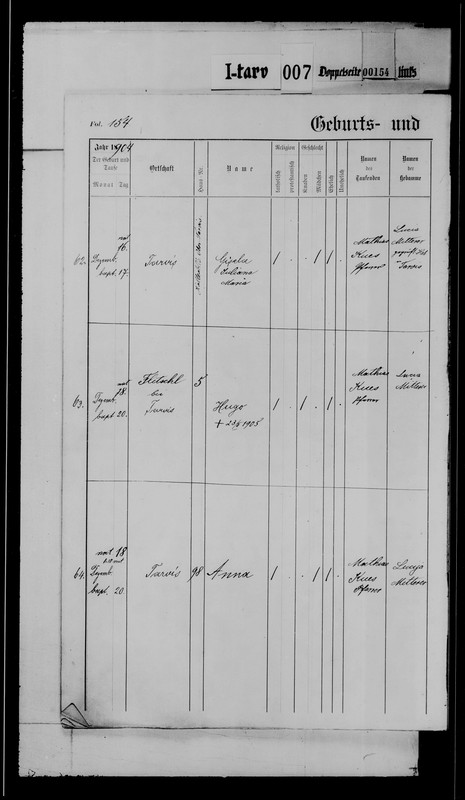 I-tarv 007 Doppelseite 00154 links
Fol. 154
Geburts- und
Jahr 1904
Der Geburt und Taufe
Monat Tag
Ortschaft
Haus-Nr.
Name
Religion
katholisch
protestantisch
Geschlecht
Knaben
Mädchen
Ehelich
Unehelich
Namen des Taufenden
Namen der Hebamme
62.
nat 16.
Dezemb.
bapt. 17.
Tarvis
Gisela
Juliana
Maria
1 . . 1 1 .
Mathias
Kues
Pfarrer
Lucia
Mitterer
Tarvis
63.
nat 18.
Dezemb.
bapt. 20.
Flitschl
bei
Tarvis
5
Hugo
1 . 1 . 1 .
Mathias
Kues
Pfarrer
Lucia
Mitterer
64.
nat 18
Dezemb.
bapt. 20.
Tarvis
98
Anna
1 . . 1 1 .
Mathias
Kues
Pfarrer
Luzia
Mitterer